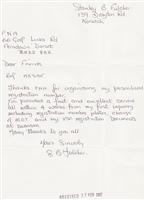 Stanley B Fulcher
139, Drayton Rd
Norwich
P N A
Golf Links Rd
Ferndown Dorset
BH22
Dear Friends
Ref
Thanks P.N.A for registering my personalised
registration number.
I'm provided a fast and excellent service
all within 4 weeks from my first enquiry
including registration number plates, change
of MOT and my registration documents
at Swansea.
Many thanks to you all
Yours Sincerely
S B Fulcher
RECEIVED 27 FEB 2007